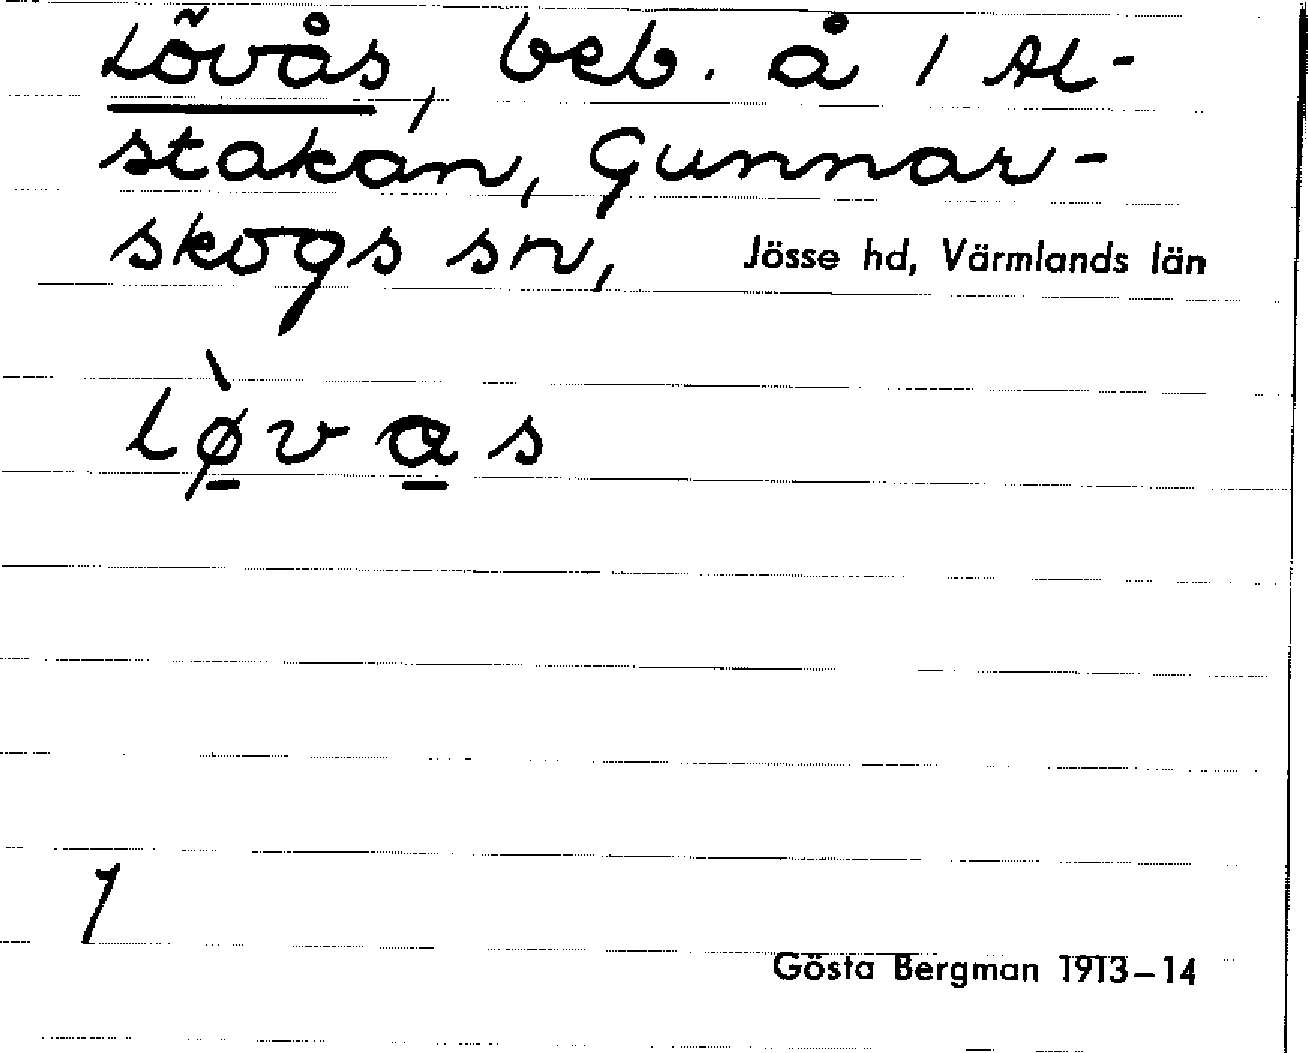 Lövås, beb. å 1 Al-
stakan, Gunnar-
skogs sn, Jösse hd, Värmlands län
lø̱̀va̱s
1
Gösta Bergman 1913–14